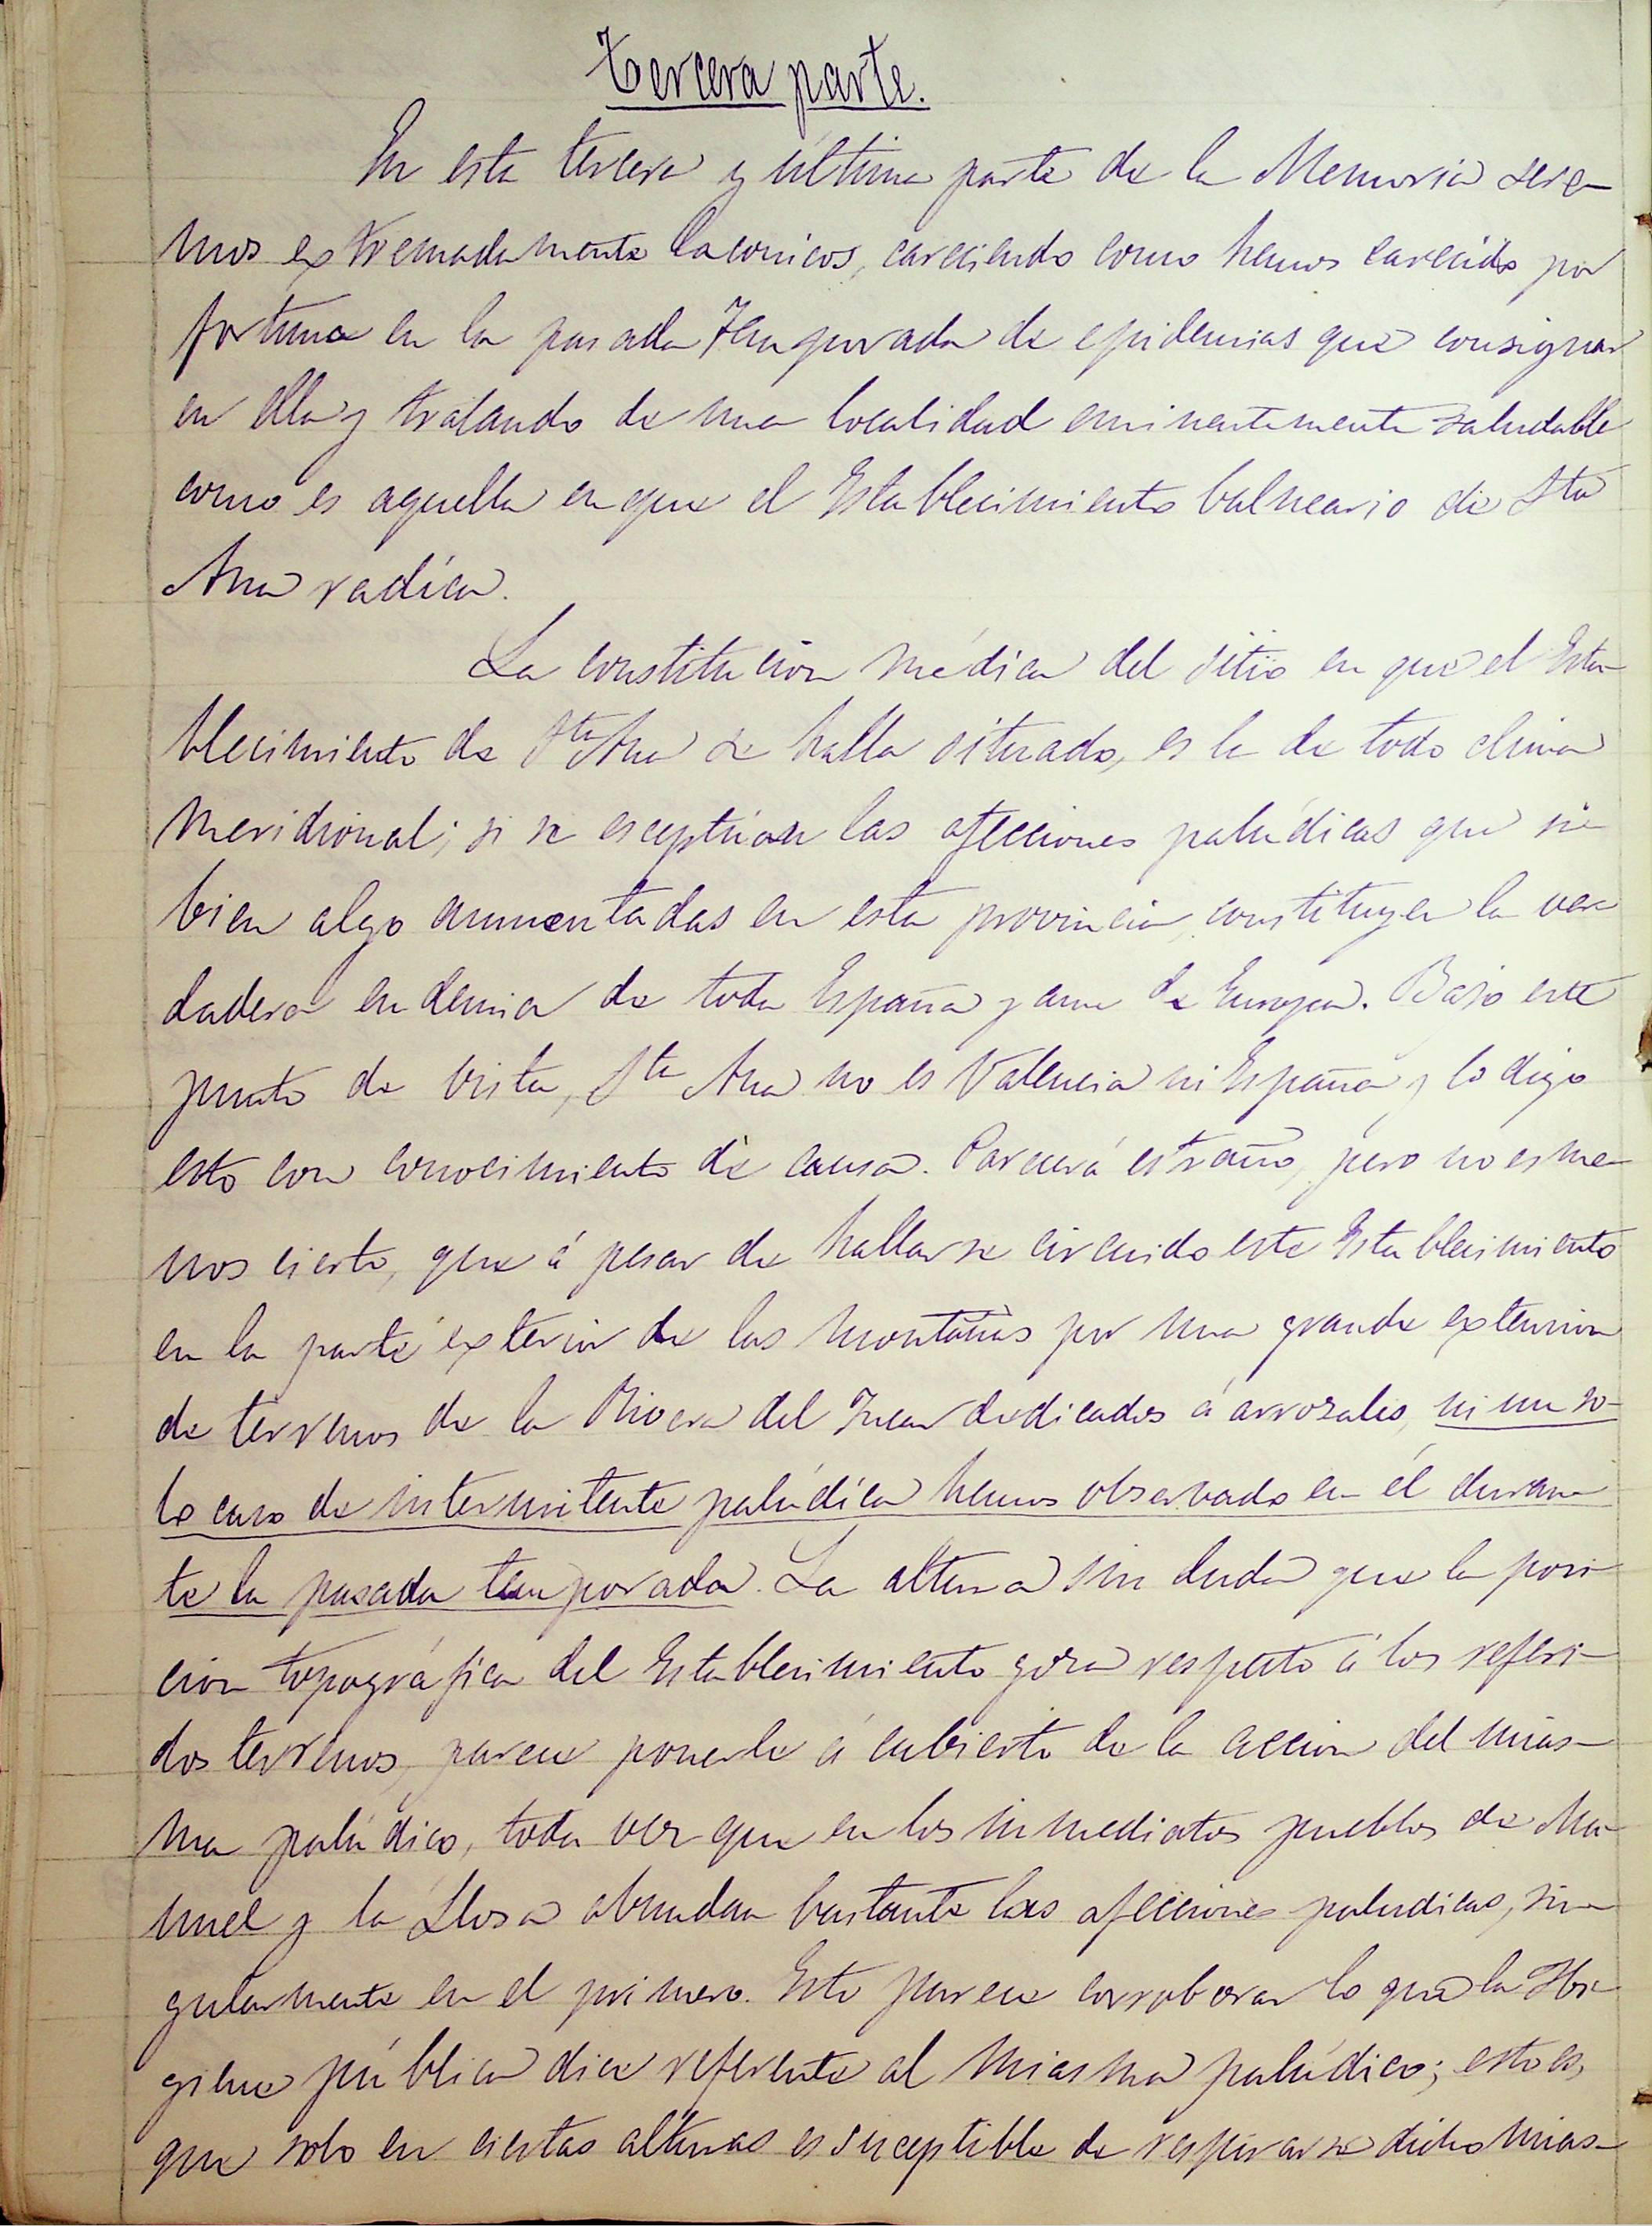 Tercera parte.
En esta tercera y última parte de la Memoria sere-
mos extremadamente laconicos, careciendo como hemos carecido por
fortuna en la pasada temporada de epidemias que consignar
en ella y tratando de una localidad eminentemente saludable
como es aquella en que el Establecimiento balneario de Sta
Ana radica.
La constitucion médica del sitio en que el Esta-
blecimiento de Sta Ana se halla situado, es la de todo clima
meridional; si se esceptúan las afecciones palúdicas que si
bien algo aumentadas en esta provincia, constituyen la ver-
dadera endemia de toda España y aun de Europa. Bajo este
punto de vista, Sta Ana no es Valencia ni España y lo digo
esto con conocimiento de causa. Parecerá estraño, pero no es me-
nos cierto, que á pesar de hallarse circuido este Establecimiento
en la parte exterior de las montañas por una grande extension
de terrenos de la Rivera del Jucar dedicados á arrozales, ni un so-
lo caso de intermitente palúdica hemos observado en él duran-
te la pasada temporada. La altura sin duda que la posi-
cion topográfica del Establecimiento goza respecto á los referi-
dos terrenos, parece ponerle á cubierto de la accion del mias-
ma palúdico, toda vez que en los inmediatos pueblos de Ma-
nuel y la Llosa abundan bastante las afecciones paludicas, sin-
gularmente en el primero. Esto parece corroborar lo que la Hi-
giene pública dice referente al miasma palúdico; esto es,
que solo en ciertas alturas es suceptible de respirarse dicho mias-